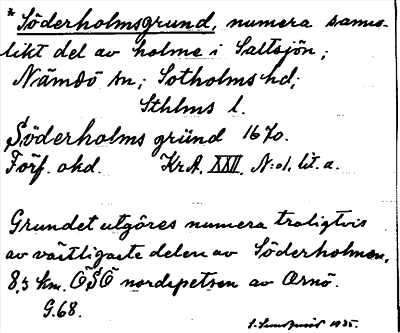 * Söderholmsgrund, numera sanno-
likt del av holme i Saltsjön;
Nämdö sn; Sotholms hd;
Sthlms l.
Söderholms gründ 1670.
Förf. okd. KrA. XXII. N:o 1. lit. a.
Grundet utgöres numera troligtvis
av västligaste delen av Söderholmen,
8,5 km. ÖSÖ nordspetsen av Ornö.
G.68.
1935.